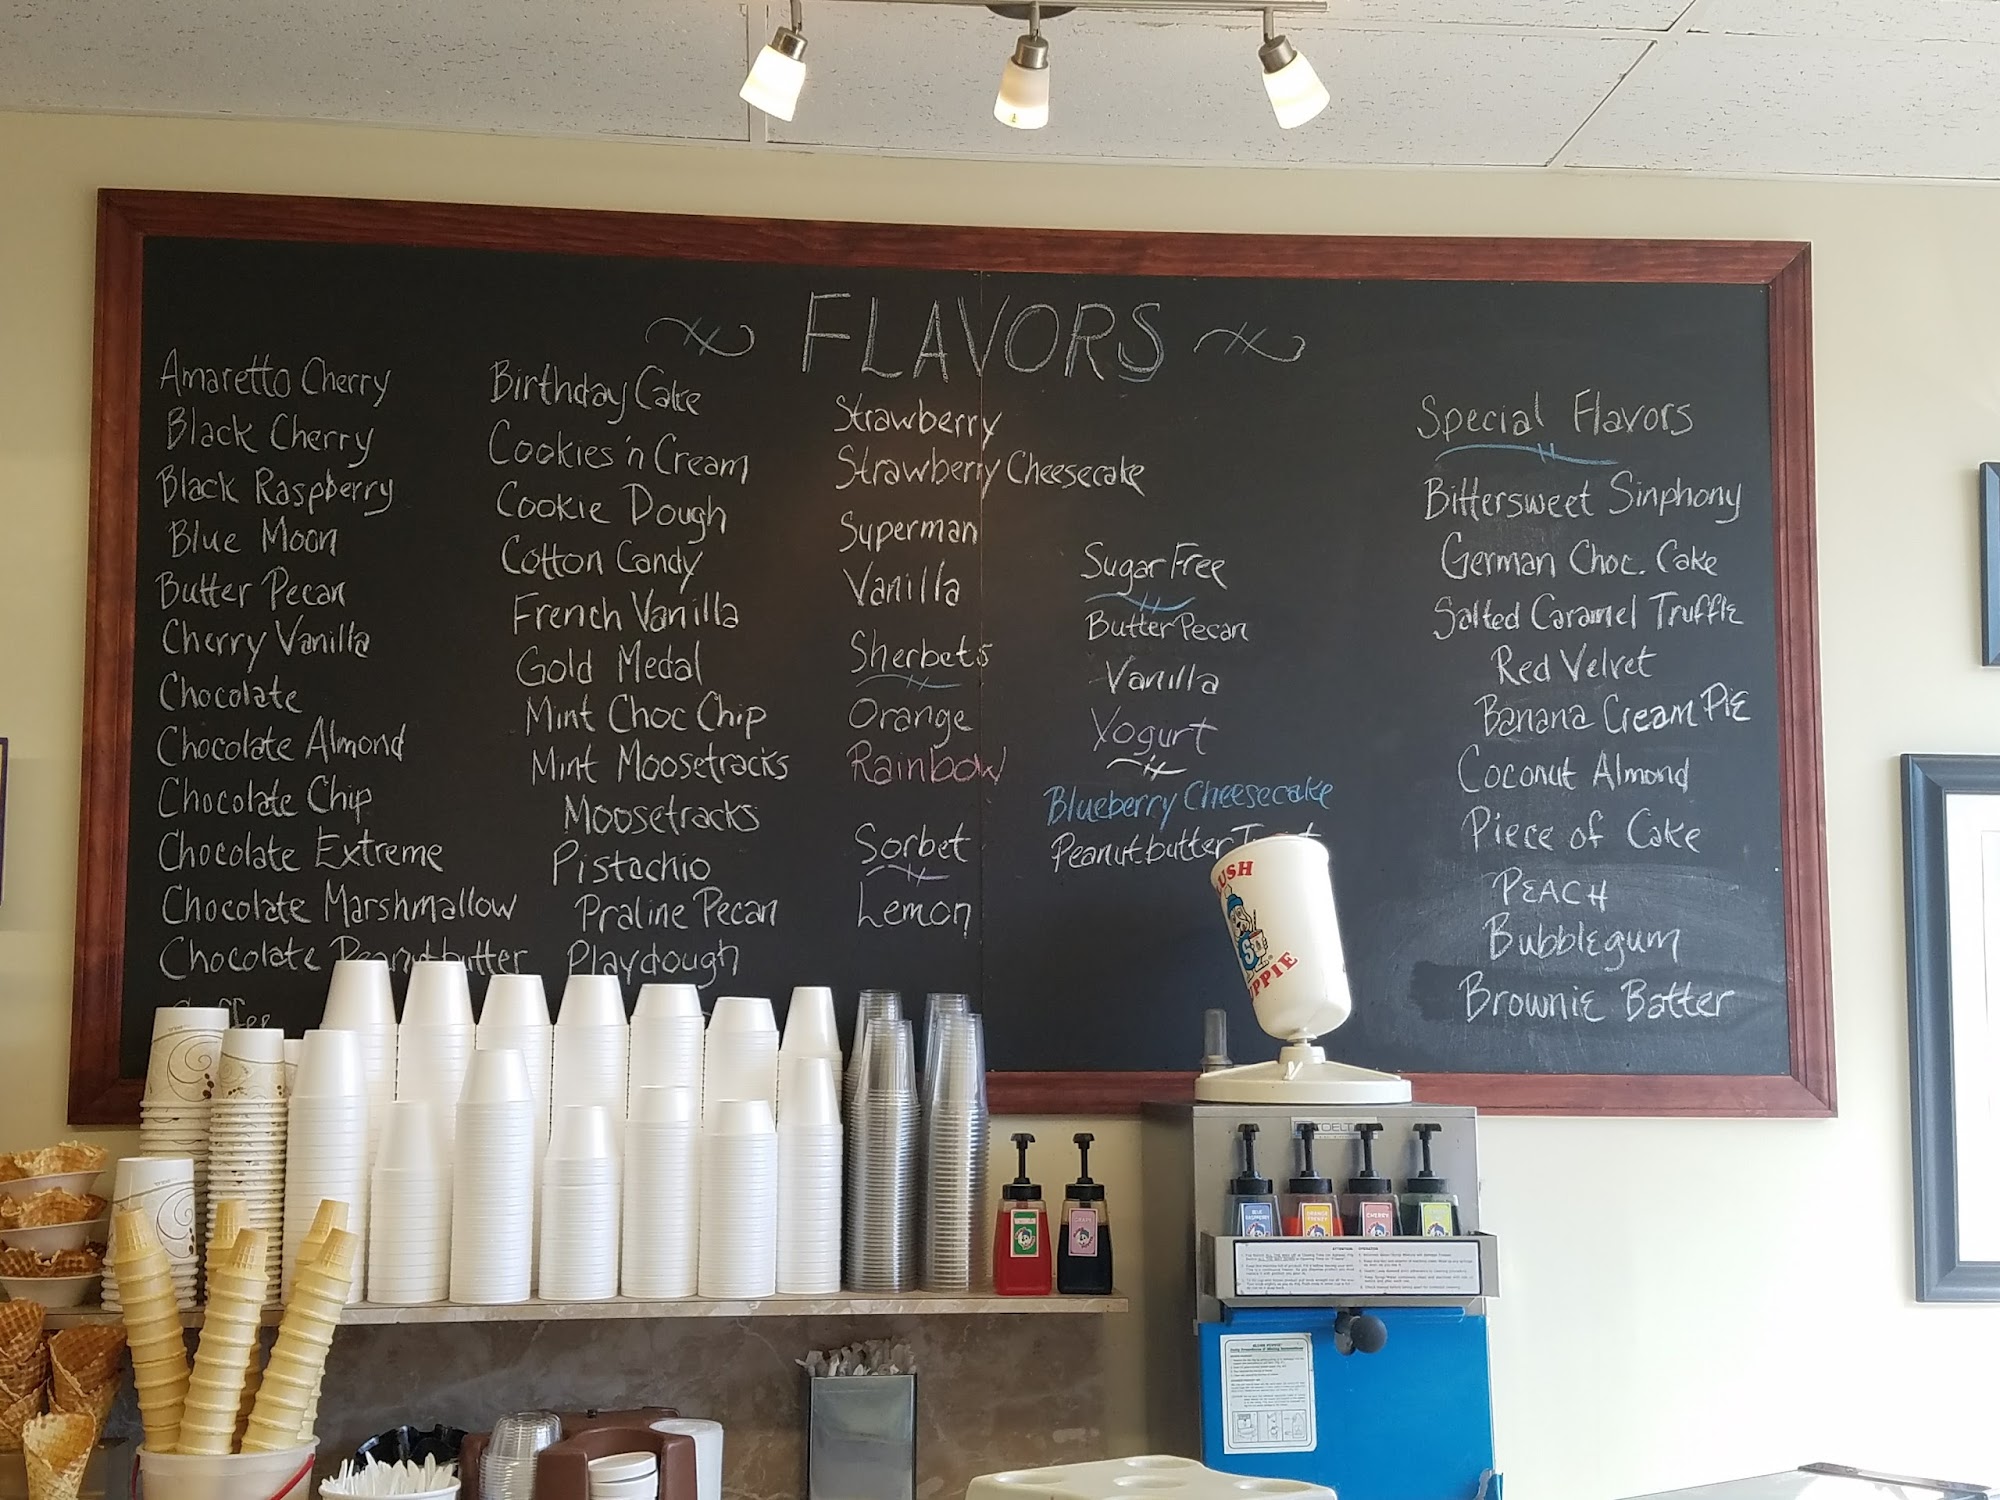 FLAVORS
Amaretto Cherry
Black Cherry
Black Raspberry
Blue Moon
Butter Pecan
Cherry Vanilla
Chocolate
Chocolate Almond
Chocolate Chip
Chocolate Extreme
Chocolate Marshmallow
Chocolate Peanutbutter
Birthday Cake
Cookies 'n Cream
Cookie Dough
Cotton Candy
French Vanilla
Gold Medal
Mint Choc Chip
Mint Moosetracks
Moosetracks
Pistachio
Praline Pecan
Playdough
Strawberry
Strawberry Cheesecake
Superman
Vanilla
Sherbets
Orange
Rainbow
Sorbet
Lemon
Sugar Free
Butter Pecan
Vanilla
Yogurt
Blueberry Cheesecake
Peanutbutter
Special Flavors
Bittersweet Sinphony
German Choc. Cake
Salted Caramel Truffle
Red Velvet
Banana Cream PiE
Coconut Almond
Piece of Cake
PEACH
Bubblegum
Brownie Batter
USH
UPPIE
CHERRY